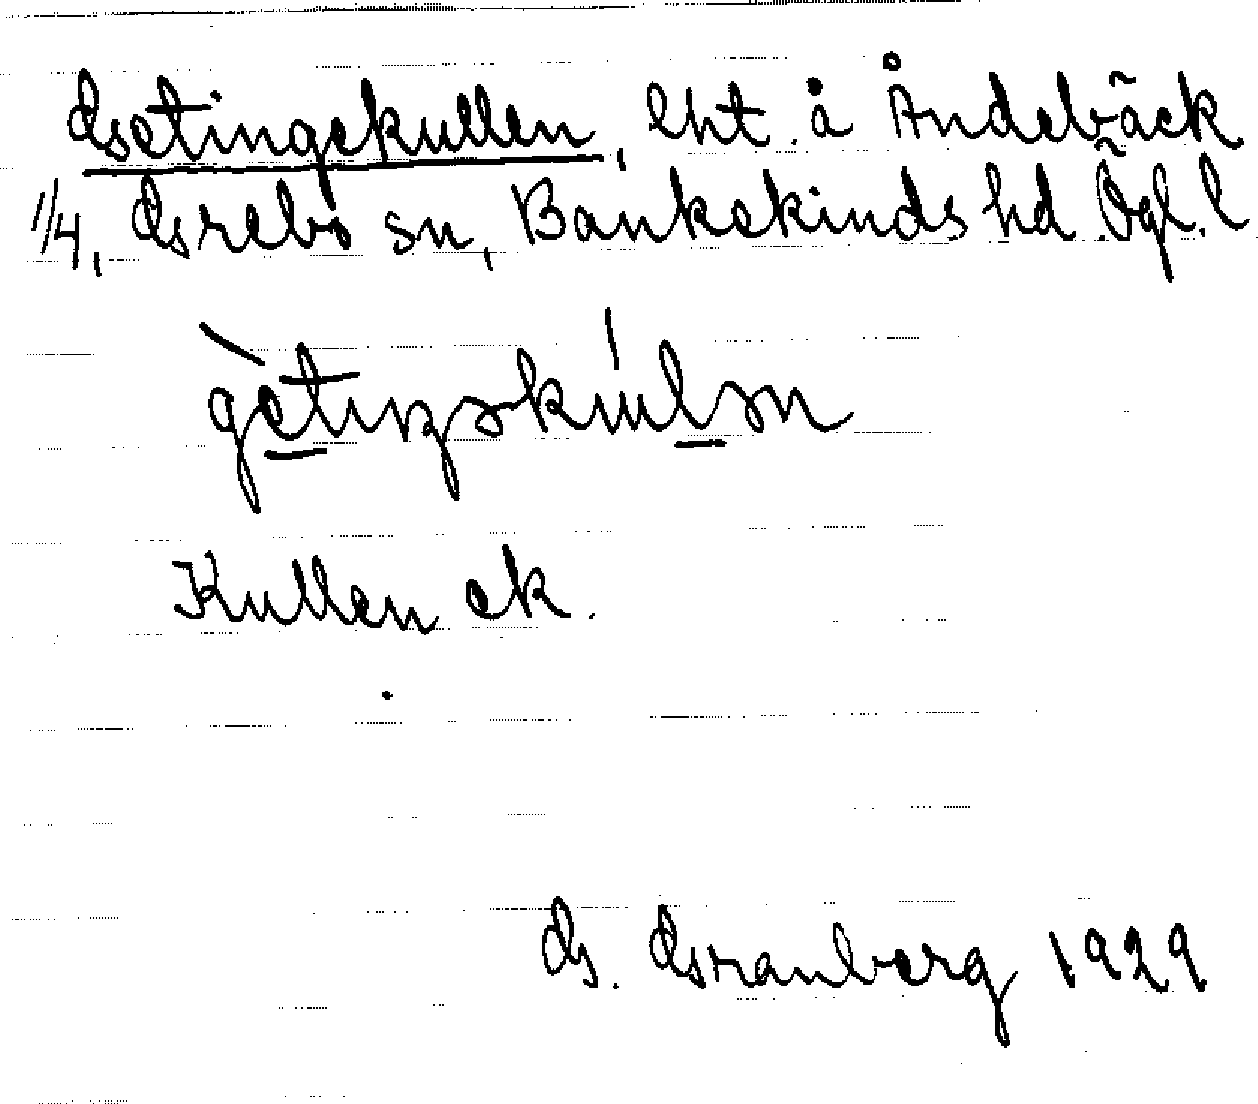 Getingekullen, lht. å Åndebäck
1/4, Grebo sn, Bankekinds hd. Ögl. l
gètiŋskúlən
Kullen ek.
G. Granberg 1929